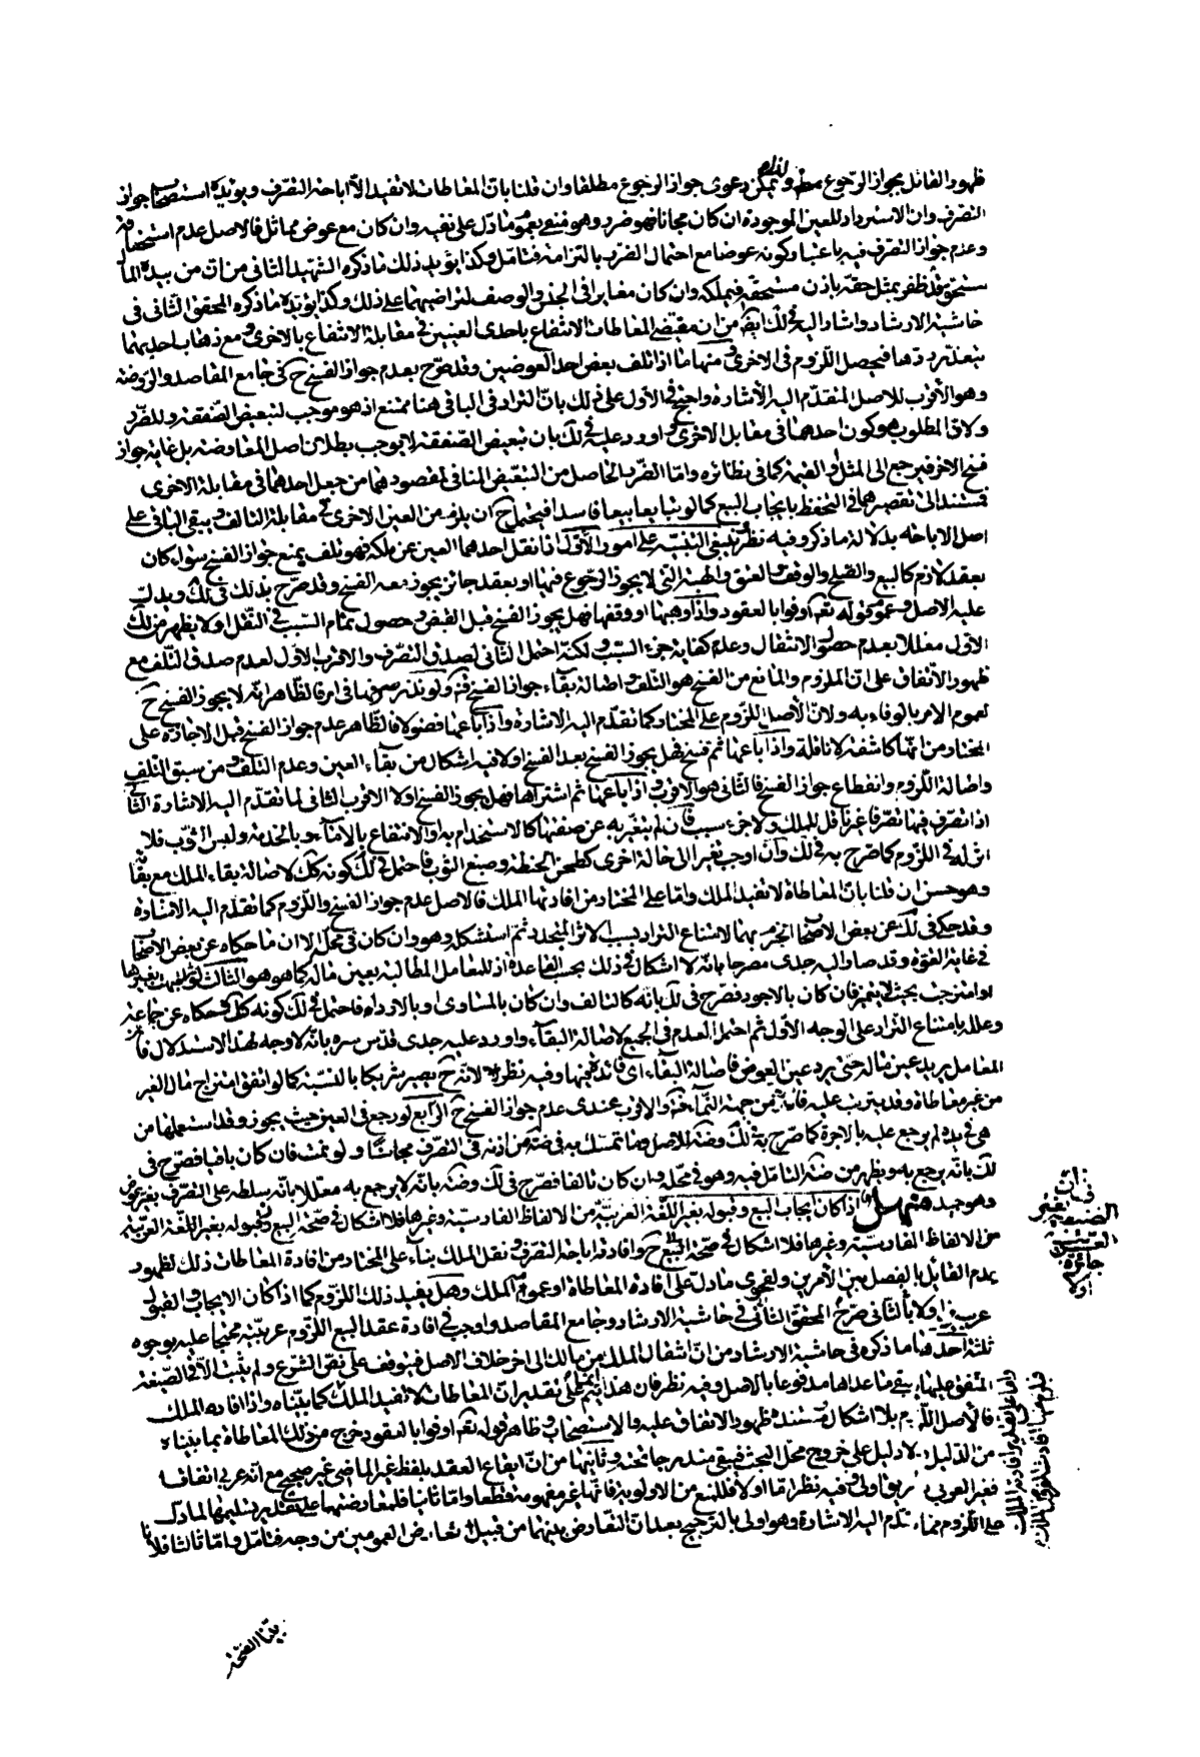 ظهور القائل بجواز الرجوع مطلقا ويمكن دعوى جواز الرجوع مطلقا وان قلنا بان المعاطات لا تفيد الا اباحة التصرف ويؤيده استصحاب جواز
التصرف وان الاسترداد للعين الموجودة ان كان مجانا فهو ضرر وهو منفي بعموم ما دل على نفيه وان كان مع عوض مماثل فالاصل عدم استحقاقه
وعدم جواز التصرف فيه باعتبار كونه عوضا مع احتمال الضرر بالتزامه فتامل وكذا يؤيد ذلك ما ذكره الشهيد الثاني من ان من بيده المال
مستحق قد ظفر بمثل حقه باذن مستحقه فيملكه وان كان مغايرا في الجنس والوصف لتراضيهما على ذلك وكذا يؤيده ما ذكره المحقق الثاني في
حاشية الارشاد واشار اليه في لك ايضا من ان مقتضى المعاطات الانتفاع باحدى العينين في مقابلة الانتفاع بالاخرى ومع ذهاب احديهما
يتعذر ردها فيحصل اللزوم في الاخرى ومنها ما اذا تلف بعض احد العوضين وقد صرح بعدم جواز الفسخ ح في جامع المقاصد والروضة
وهو الاقرب للاصل المتقدم اليه الاشارة واحتج في الاول على ذلك بان التراد في الباقي هنا ممتنع اذ هو موجب لتبعيض الصفقة وللضرر
ولان المطلوب هو كون احدهما في مقابل الاخرى واورد عليه في لك بان تبعيض الصفقة لا يوجب بطلان اصل المعاوضة بل غايته جواز
فسخ الاخر فيرجع الى المثل او القيمة كما في نظائره واما الضرر الحاصل من التبعيض المنافي لمقصودهما من جعل احدهما في مقابلة الاخرى
فمستند الى تقصيرهما في التحفظ بايجاب البيع كما لو تبايعا بيعا فاسدا فيحتمل ح ان يلزم من العين الاخرى في مقابلة التالف ويبقى الباقي على
اصل الاباحة بدلالة ما ذكر وفيه نظر وينبغي التنبيه على امور الاول اذا نقل احدهما العين عن ملكه فهو تلف يمنع جواز الفسخ سواء كان
بعقد لازم كالبيع والصلح والوقف والعتق والهبة التي لا يجوز الرجوع فيها او بعقد جائز يجوز معه الفسخ وقد صرح بذلك في لك ويدل
عليه الاصل وعموم قوله تعم اوفوا بالعقود واذا وهبها او وقفها فهل يجوز الفسخ قبل القبض وحصول تمام السبب في النقل او لا يظهر من لك
الاول معللا بعدم حصول الانتقال وعدم كفاية جزء السبب ولكنه احتمل الثاني لصدق التصرف والاقرب الاول لعدم صدق التلف مع
ظهور الاتفاق على ان الملزوم والمانع من الفسخ هو التلف واصالة بقاء جواز الفسخ فت ولو نذر صرفها في امر فالظاهر انه لا يجوز الفسخ ح
لعموم الامر بالوفاء به ولان الاصل اللزوم على المختار كما تقدم اليه الاشارة واذا باعها فضولا فالظاهر عدم جواز الفسخ قبل الاجازة على
المختار من انها كاشفة لا ناقلة واذا باعها ثم فسخ فهل يجوز الفسخ بعد الفسخ او لا فيه اشكال من بقاء العين وعدم التلف ومن سبق التلف
واصالة اللزوم وانقطاع جواز الفسخ فالثاني هو الاقرب واذا باعها ثم اشتراها فهل يجوز الفسخ او لا الاقرب الثاني لما تقدم اليه الاشارة الثاني
اذا تصرف فيها تصرفا غير ناقل للملك ولا جزء سبب فان لم تتغير به عن صفتها كالاستخدام به والانتفاع بالاناء وبالخدمة ولبس الثوب فلا
اثر له في اللزوم كما صرح به في لك وان اوجب تغيرا الى حالة اخرى كطحن الحنطة وصبغ الثوب فاحتمل في لك كونه كك لاصالة بقاء الملك مع بقائه
وهو حسن ان قلنا بان المعاطاة لا تفيد الملك واما على المختار من افادتها الملك فالاصل عدم جواز الفسخ واللزوم كما تقدم اليه الاشارة
وقد حكى في لك عن بعض الاصحاب الجزم بهما لامتناع التراد بسبب الاثر المتجدد ثم استشكله وهو وان كان في محله الا ان ما حكاه عن بعض الاصحاب
في غاية القوة وقد صار اليه جدى مصرحا بانه لا اشكال في ذلك بحسب القاعدة اذ للمعامل المطالبة بعين ماله كما هو هو الثالث لو اشتبهت بغيرها
او امتزجت بحيث لا يتميز فان كان بالاجود فصرح في لك بانه كالتالف وان كان بالمساوى او بالارداء فاحتمل في لك كونه كك وحكاه عن جماعة
وعلله بامتناع التراد على الوجه الاول ثم احتمل العدم في الجميع لاصالة البقاء واورد عليه جدى قدس سره بانه لا وجه لهذا الاستدلال فان
المعامل يريد عين ماله حتى يرد عين العوض فاصالة البقاء اى فائدة فيها وفيه نظر لانه ح يصير شريكا بالنسبة كما لو اتفق امتزاج مال الغير
من غير معاطاة وقد يترتب عليه فائدة من جهة النماء فت والاقرب عندى عدم جواز الفسخ ح الرابع لو رجع في العين حيث يجوز وقد استعملها من
هى في يده لم يرجع عليه بالاجرة كما صرح به في لك وضه للاصل وما تمسك به في ضه من اذنه في التصرف مجانا ولو نمت فان كان باقيا فصرح في
لك بانه يرجع به ويظهر من ضه التامل فيه وهو في محله وان كان تالفا فصرح في لك وضه بانه لا يرجع به معللا بانه سلطه على التصرف بغير عوض
وهو جيد منهل اذا كان ايجاب البيع وقبوله بغير اللغة العربية من الالفاظ الفارسية وغيرها فلا اشكال في صحة البيع وقبوله بغير اللغة العربية
من الالفاظ الفارسية وغيرها فلا اشكال في صحة البيع ح وافادته اباحة التصرف ونقل الملك بناء على المختار من افادة المعاطات ذلك لظهور
عدم القائل بالفصل بين الامرين ولفحوى ما دل على افادة المعاطاة او عموم الملك وهل يفيد ذلك اللزوم كما اذا كان الايجاب والقبول
عربيين او لا بالثاني صرح المحقق الثاني في حاشية الارشاد وجامع المقاصد واوجب في افادة عقد البيع اللزوم عربيته محتجا عليه بوجوه
ثلثة احدها ما ذكره في حاشية الارشاد من ان انتقال الملك من مالك الى اخر خلاف الاصل فيتوقف على نص الشرع ولم يثبت الا في الصيغة
المتفق عليها يبقى ما عداها مدفوعا بالاصل وفيه نظر فان هذا انما يتم على تقدير ان المعاطات لا تفيد الملك كما بيناه واذا افاده الملك
فالاصل اللزوم بلا اشكال مستنده ظهور الاتفاق عليه والاستصحاب وظاهر قوله تعم اوفوا بالعقود خرج من ذلك المعاطاة بما بيناه
من الدليل لا دليل على خروج محل البحث فيبقى مندرجا تحته وثانيها من ان ايقاع العقد بلفظ غير الماضي غير صحيح مع انه عربي اتفاقا
فغير العربي بطريق اولى وفيه نظر اما اولا فللمنع من الاولوية فانها غير مفهومة قطعا واما ثانيا فلمعارضتها على تقدير تسليمها لما دل
على اللزوم مما تقدم اليه الاشارة وهو اولى بالترجيح بعد ان التعارض بينهما من قبيل تعارض العمومين من وجه فتامل واما ثالثا فلان
بينا الصحة